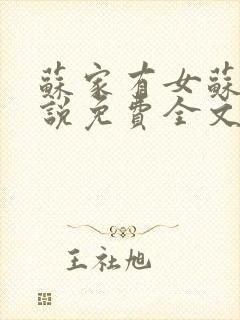 蘇家有女蘇
說免費全文
王社旭